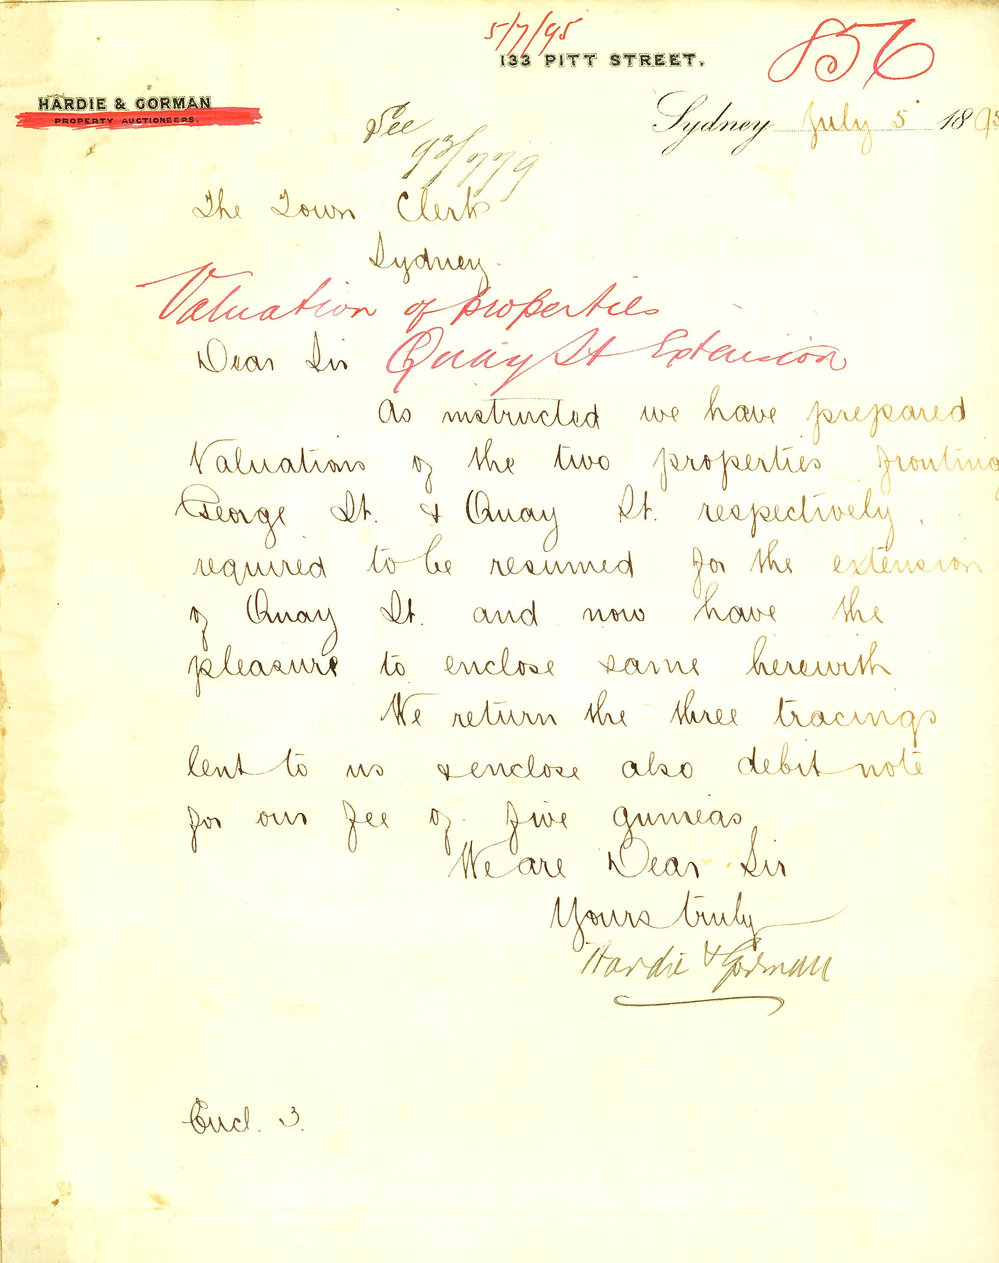 5/7/95
133 PITT STREET.
856
HARDIE & GORMAN
PROPERTY AUCTIONEERS.
Sydney July 5 1895
See
93/779
The Town Clerk
Sydney
Valuation of properties
Quay St Extension
Dear Sir
As instructed we have prepared
Valuations of the two properties fronting
George St. & Quay St. respectively,
required to be resumed for the extension
of Quay St. and now have the
pleasure to enclose same herewith
We return the three tracings
lent to us & enclose also debit note
for our fee of five guineas
We are Dear Sir
Yours truly
Hardie & Gorman
Encl. 3.